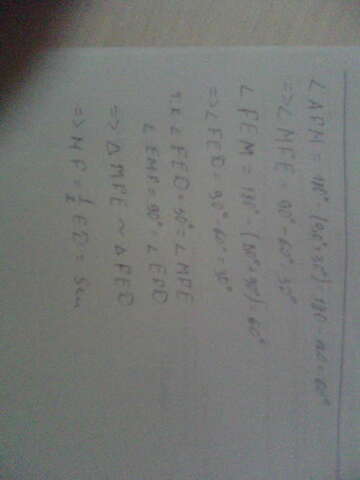 ∠AFM = 180° - (90°+30°) = 180 - 120 = 60°
=> ∠MFE = 90° - 60° = 30°
∠FEM = 180° - (30°+90°) = 60°
=> ∠FED = 90° - 60° = 30°
т.к ∠FED = 30° = ∠MFE
∠EMF = 90° = ∠EFD
=> △MFE ~ △FED
=> MF = ½ ED = 5см